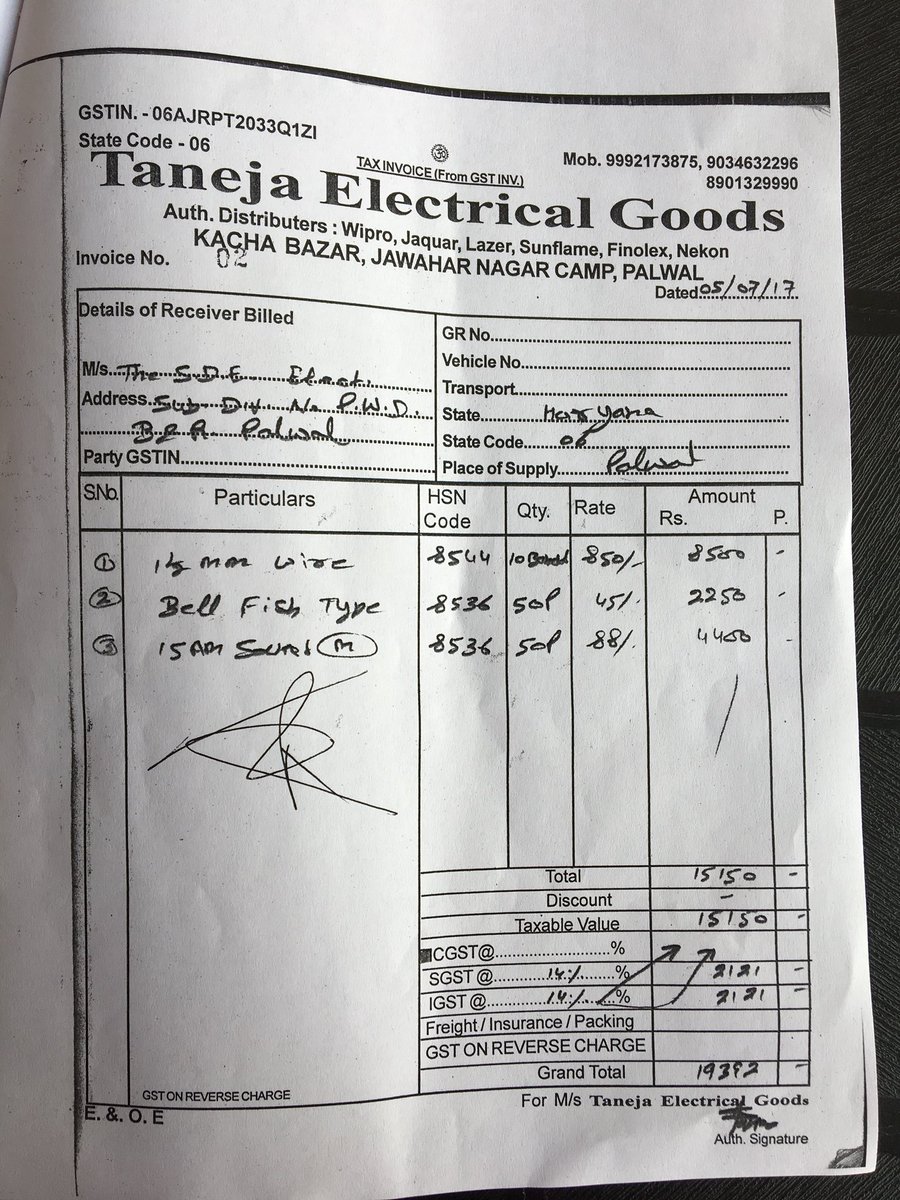 GSTIN. - 06AJRPT2033Q1ZI
State Code - 06
TAX INVOICE (From GST INV.)
Mob. 9992173875, 9034632296
8901329990
Taneja Electrical Goods
Auth. Distributers : Wipro, Jaquar, Lazer, Sunflame, Finolex, Nekon
KACHA BAZAR, JAWAHAR NAGAR CAMP, PALWAL
Invoice No. 02
Dated 05/07/17
Details of Receiver Billed
M/s. The S.D.E. Elect.
Address Sub Div No P.W.D.
B&R Palwal
Party GSTIN
GR No.
Vehicle No.
Transport
State Haryana
State Code 06
Place of Supply Palwal
S.No. Particulars HSN Code Qty. Rate Amount Rs. P.
1 1½ mm wire 8544 10 850/- 8500 -
2 Bell Fish Type 8536 50P 45/- 2250 -
3 15AM M 8536 50P 88/- 4400 -
Total 15150 -
Discount -
Taxable Value 15150 -
CGST@ %
SGST @ 14% % 2121 -
IGST @ 14% % 2121 -
Freight / Insurance / Packing
GST ON REVERSE CHARGE
Grand Total 19392 -
GST ON REVERSE CHARGE
E. &. O. E
For M/s Taneja Electrical Goods
Auth. Signature